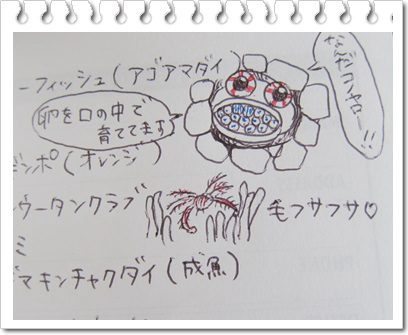 ーフィッシュ(アゴアマダイ
なんだコノヤロー!!
卵を口の中で
育ててます
ンポ(オレンジ)
ウータンクラブ
モフサフサ♡
ミ
マキンチャクダイ(成魚)